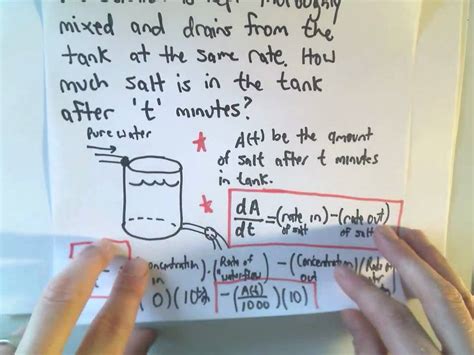 mixed and drains from the
tank at the same rate. How
much salt is in the tank
after 't' minutes?
Pure water
* A(t) be the amount
of salt after t minutes
in tank.
* dA/dt = (rate in) - (rate out)
of salt of salt
(Concentration in) · (Rate of waterflow) - (Concentration out)(Rate of
(0)(10 - (A(t)/1000)(10)